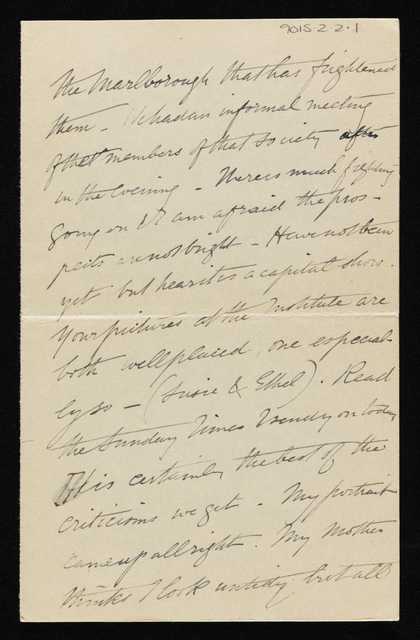 9015-2-2-1
the Marlborough that has frightened
them - We had an informal meeting
of the members of that Society after
in the evening - There is much
going on & I am afraid the pros-
pects are not bright - Have not been
yet but hear it is a capital show.
Your pictures at the Institute are
both well placed, one especial-
ly so - (Susie & Ethel). Read
the Sunday Times Wendy on today
It is certainly the best of the
criticisms we get - My portrait
came up all right. My Mother
thinks I look untidy but all